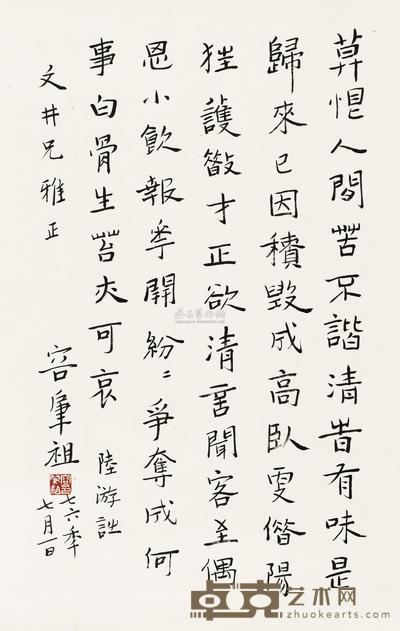 莫恨人間苦不諧清時有味是
歸來已因積毀成高臥更借陽
狂護散才正欲清言聞客至偶
思小飲報花開紛〻爭奪成何
事白骨生苔亦可哀 陸游詩
文井兄雅正
容肇祖
七六年
七月一日
卓克艺术网
zhuokearts.com